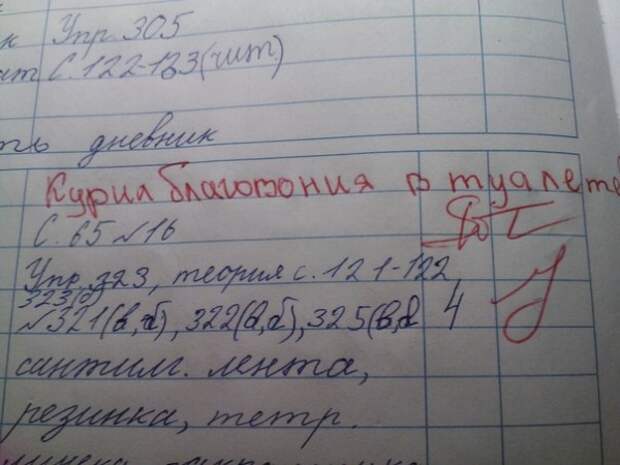 к Упр. 305
ат С. 122-123 (чит.)
ть дневник
Курил благовония в туалете
С. 65 №16
Упр. 323, теория с. 121-122
323(б)
№321(в,б), 322(а,б), 325(в,а 4
сантим. лента,
резинка, тетр.